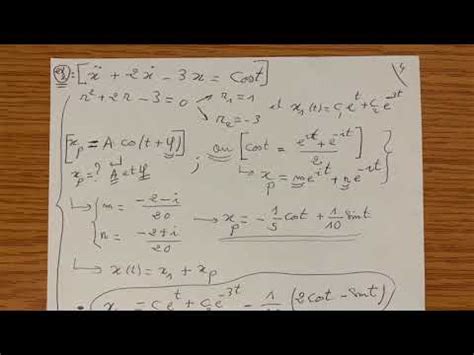 ex: [ẍ + 2ẋ - 3x = cost]
r²+2r-3=0 → r₁=1 et x₁(t)=c₁e^t+c₂e^-3t
→ r₂=-3
[x_p = A cos(t+φ)] ; ou [cost = (e^it+e^-it)/2]
x_p=? A et φ → x_p = me^it+ne^-it
m = (-2-i)/20
n = (-2+i)/20 → x_p = -1/5 cost + 1/10 sint
→ x(t) = x₁ + x_p
= c₁e^t + c₂e^-3t - 1/10 (2cost - sint)